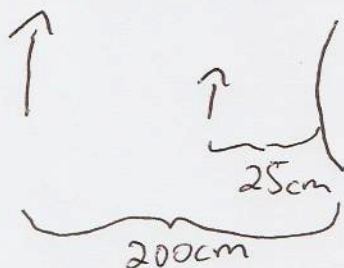 25cm
200cm